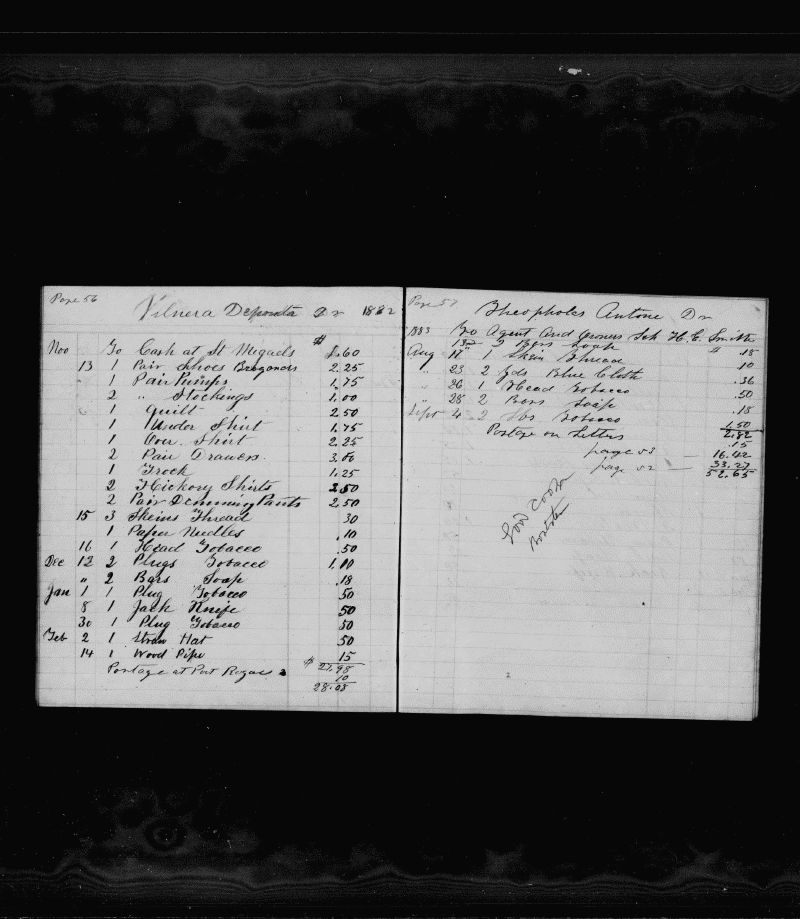 Page 56
Vilnera Deponta Dr 1882
$
Nov To Cash at St Meguels 5.60
13 1 Pair Shoes Brogans 2.25
1 Pair Pumps 1.75
2 " Stockings 1.00
1 quilt 2.50
1 Under Shirt 1.75
1 Over Shirt 2.25
2 Pair Drawers 3.00
1 Frock 1.25
2 Hickory Shirts 2.50
2 Pair Demming Pants 2.50
15 3 Skeins Thread 30
1 Paper Needles .10
16 1 Head Tobacco .50
Dec 12 2 Plugs Tobacco 1.00
" 2 Bars Soap .18
Jan 1 1 Plug Tobacco 50
8 1 Jack Knife 50
30 1 Plug Tobacco 50
Feb 2 1 Straw Hat 50
14 1 Wood Pipe 15
$ 27.98
Postage at Port 10
28.08
Page 57
Theopholes Antone Dr
1883 To Agent and owners Sch H. C. Smith
13 2 Bars Soap " .18
Aug 17 1 Skein Thread .10
" 23 2 Yds Blue Cloth .36
" 26 1 Head Tobacco .50
" 28 2 Bars Soap .18
Sept 4 2 lbs Tobacco 1.50
2.82
Postage on Letters .15
page 53 — 16.42
page 52 — 33.27
52.65